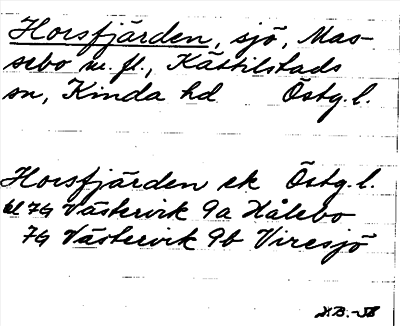 Horsfjärden, sjö, Mas-
sebo m. fl., Kättilstads
sn, Kinda hd Östg. l.
Horsfjärden ek Östg. l.
bl 7G Västervik 9a Hålebo
7G Västervik 9b Viresjö
-58